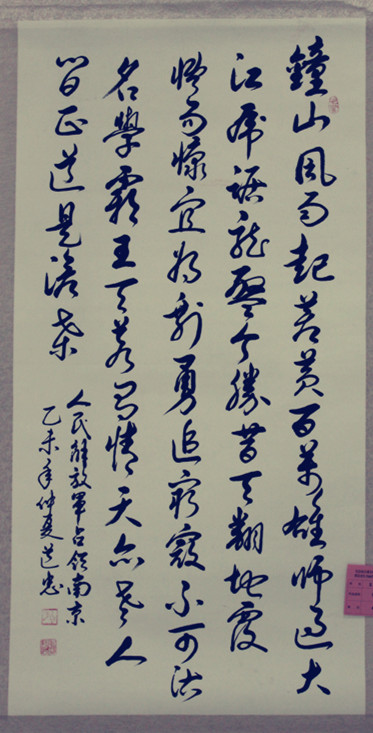 鐘山風雨起蒼黃百萬雄師過大
江虎踞龍盤今勝昔天翻地覆
慨而慷宜將剩勇追窮寇不可沽
名學霸王天若有情天亦老人
間正道是滄桑
人民解放軍占領南京
乙未年仲夏道忠